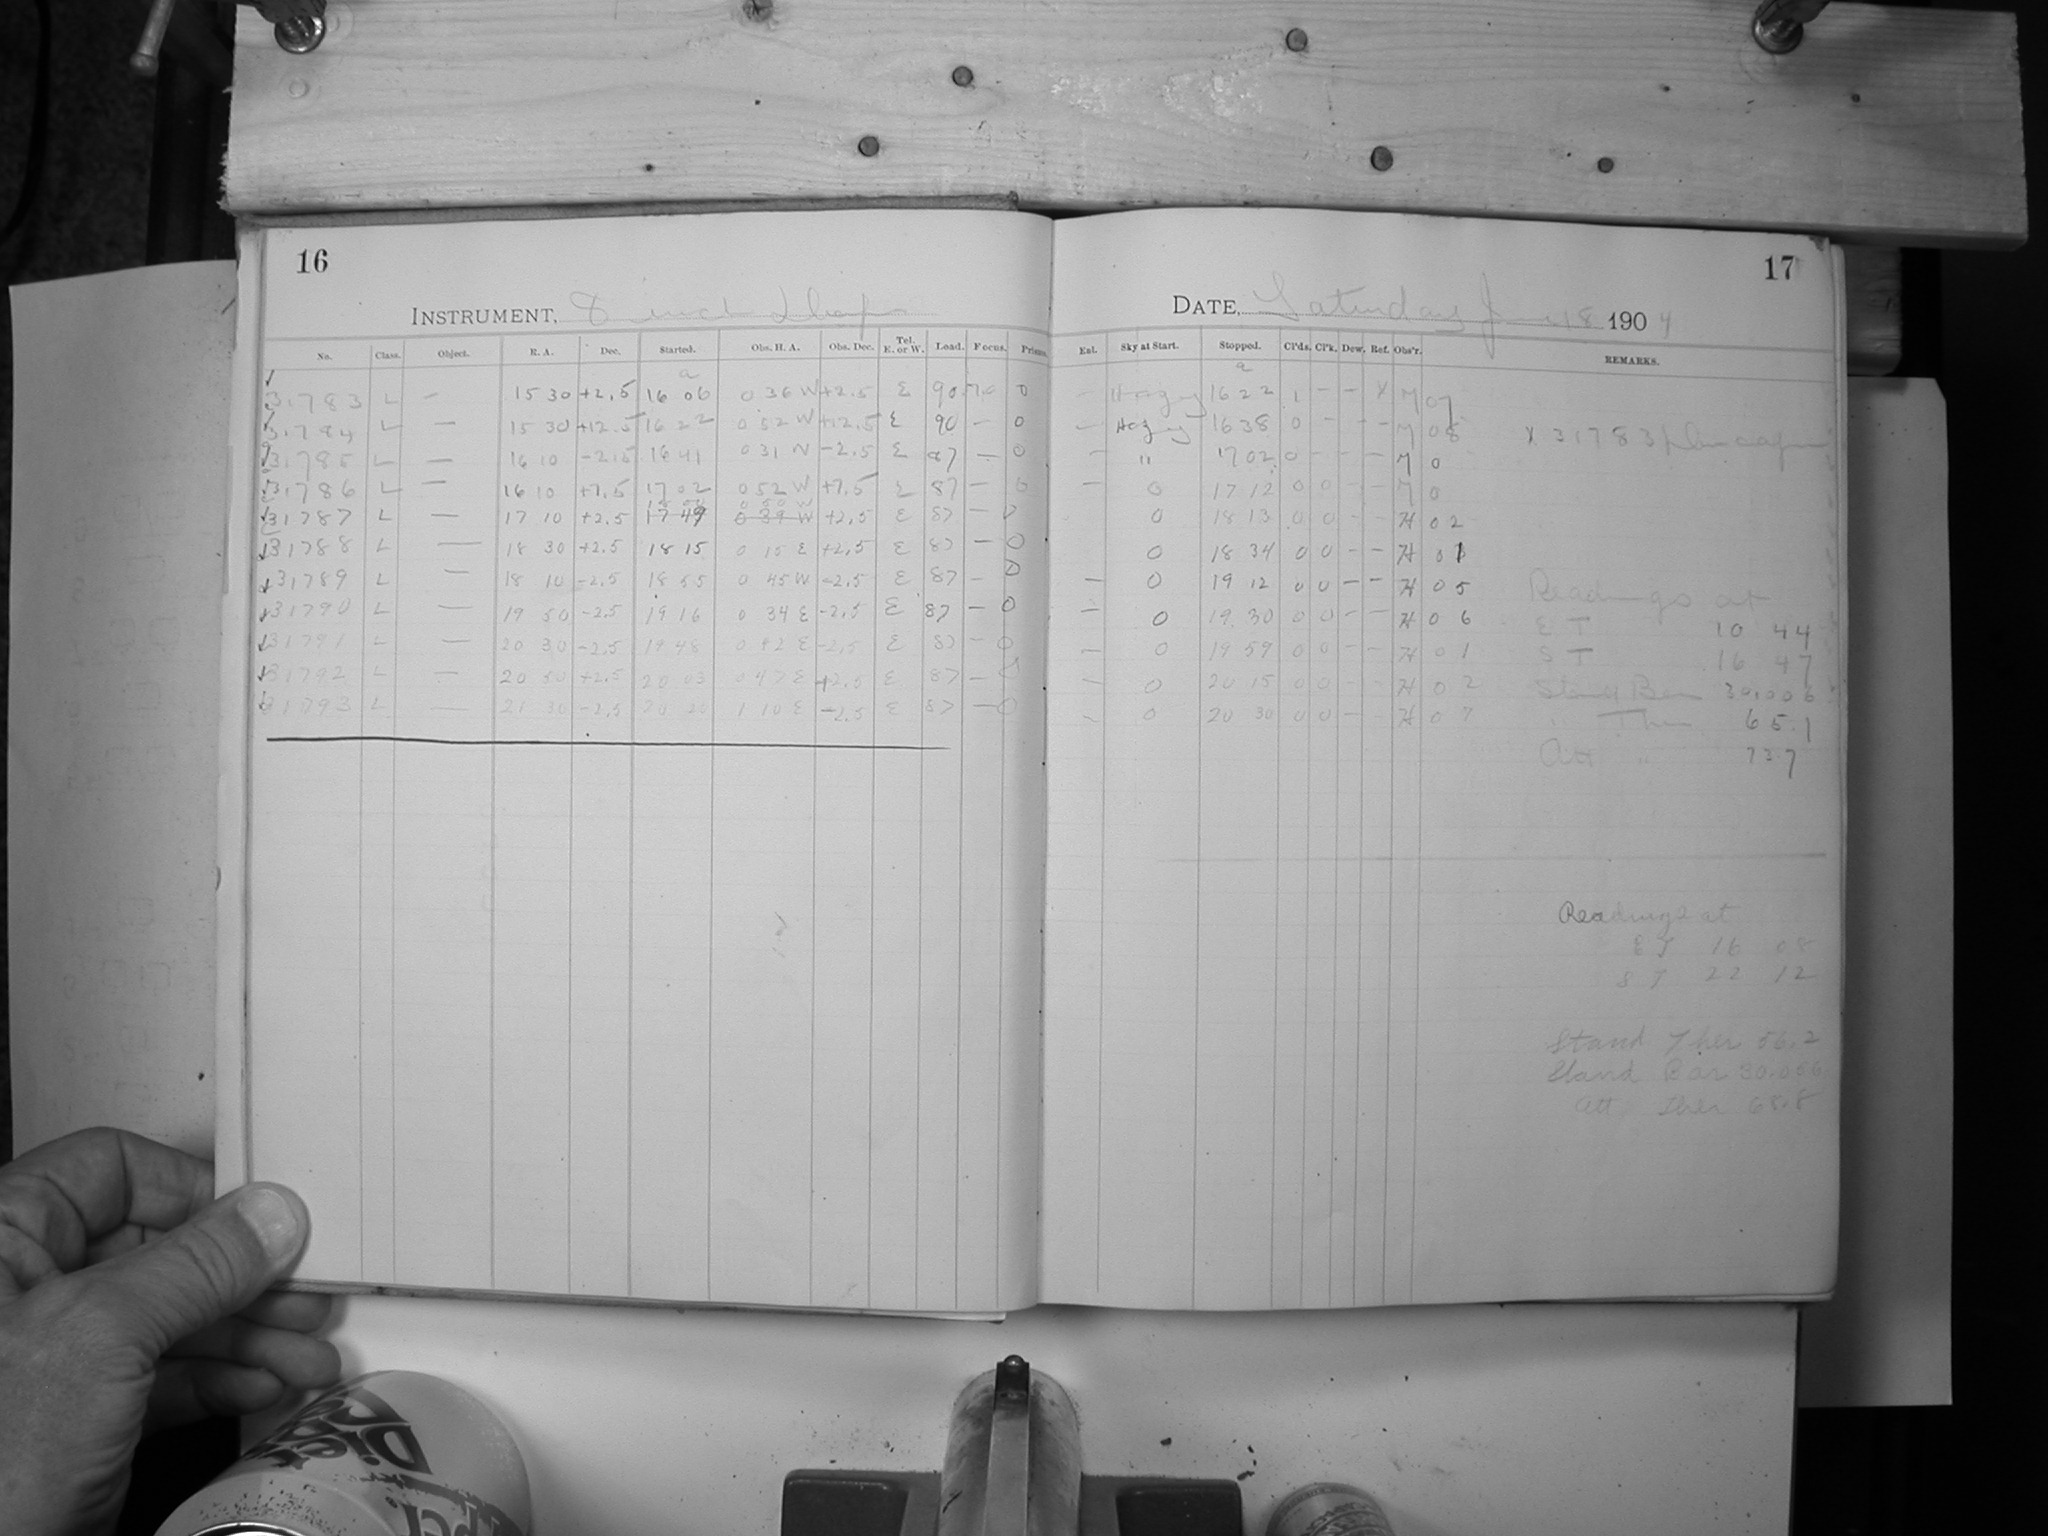 16
INSTRUMENT, 8 inch Draper
No. Class. Object. R. A. Dec. Started. Obs. H. A. Obs. Dec. Tel. E. or W. Load. Focus. Prisms.
a
31783 L — 15 30 +2.5 16 06 0 36 W +2.5 E 90 7.0 0
31784 L — 15 30 +12.5 16 22 0 52 W +12.5 E 90 — 0
31785 L — 16 10 -2.5 16 41 0 31 W -2.5 E 87 — 0
31786 L — 16 10 +7.5 17 02 0 52 W +7.5 E 87 — 0
18 00 0 50 W
31787 L — 17 10 +2.5 17 49 0 39 W +2.5 E 87 — 0
31788 L — 18 30 +2.5 18 15 0 15 E +2.5 E 87 — 0
31789 L — 18 10 -2.5 18 55 0 45 W -2.5 E 87 — 0
31790 L — 19 50 -2.5 19 16 0 34 E -2.5 E 87 — 0
31791 L — 20 30 -2.5 19 48 0 42 E -2.5 E 87 — 0
31792 L — 20 50 +2.5 20 03 0 47 E +2.5 E 87 — 0
31793 L — 21 30 -2.5 20 20 1 10 E -2.5 E 87 — 0
17
DATE, Saturday June 18 1904
Ext. Sky at Start. Stopped. Cl'ds. Cl'k. Dew. Ref. Obs'r. REMARKS.
a
— Hazy 16 22 1 — — X M 07
— Hazy 16 38 0 — — — M 08 X 31783
— " 17 02 0 — — — M 0
— 0 17 12 0 0 — — M 0
0 18 13 0 0 — — H 02
0 18 34 0 0 — — H 01
— 0 19 12 0 0 — — H 05
— 0 19 30 0 0 — — H 06
— 0 19 59 0 0 — — H 01
— 0 20 15 0 0 — — H 02
— 0 20 30 0 0 — — H 07
Readings at
E T 10 44
S T 16 47
Stand Bar 30.006
" Ther 65.1
Att " 73.7
Readings at
E T 16 08
S T 22 12
Stand Ther 56.2
Stand Bar 30.006
Att. Ther 68.8
Diet